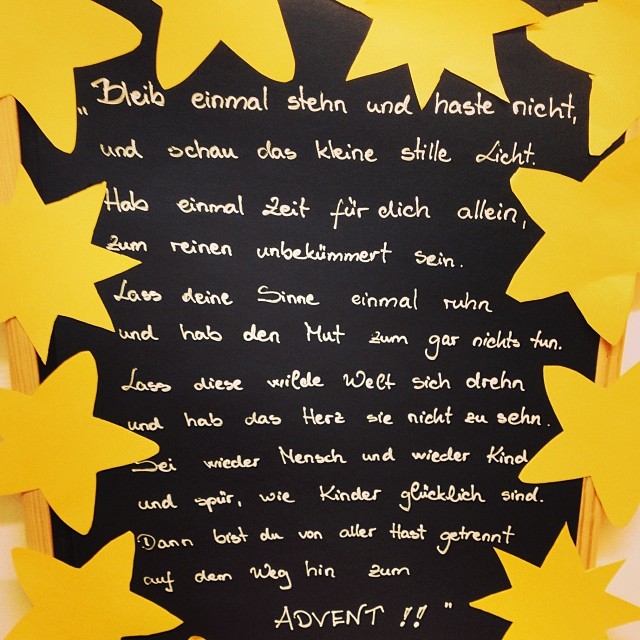 „Bleib einmal stehn und haste nicht,
und schau das kleine stille Licht.
Hab einmal Zeit für dich allein,
zum reinen unbekümmert sein.
Lass deine Sinne einmal ruhn
und hab den Mut zum gar nichts tun.
Lass diese wilde Welt sich drehn
und hab das Herz sie nicht zu sehn.
Sei wieder Mensch und wieder Kind
und spür, wie Kinder glücklich sind.
Dann bist du von aller Hast getrennt
auf dem Weg hin zum
ADVENT !!"